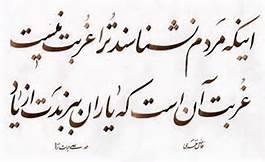 اینکه مردم نشناسند ترا غربت نیست
غربت آن است که یاران ببرندت از یاد